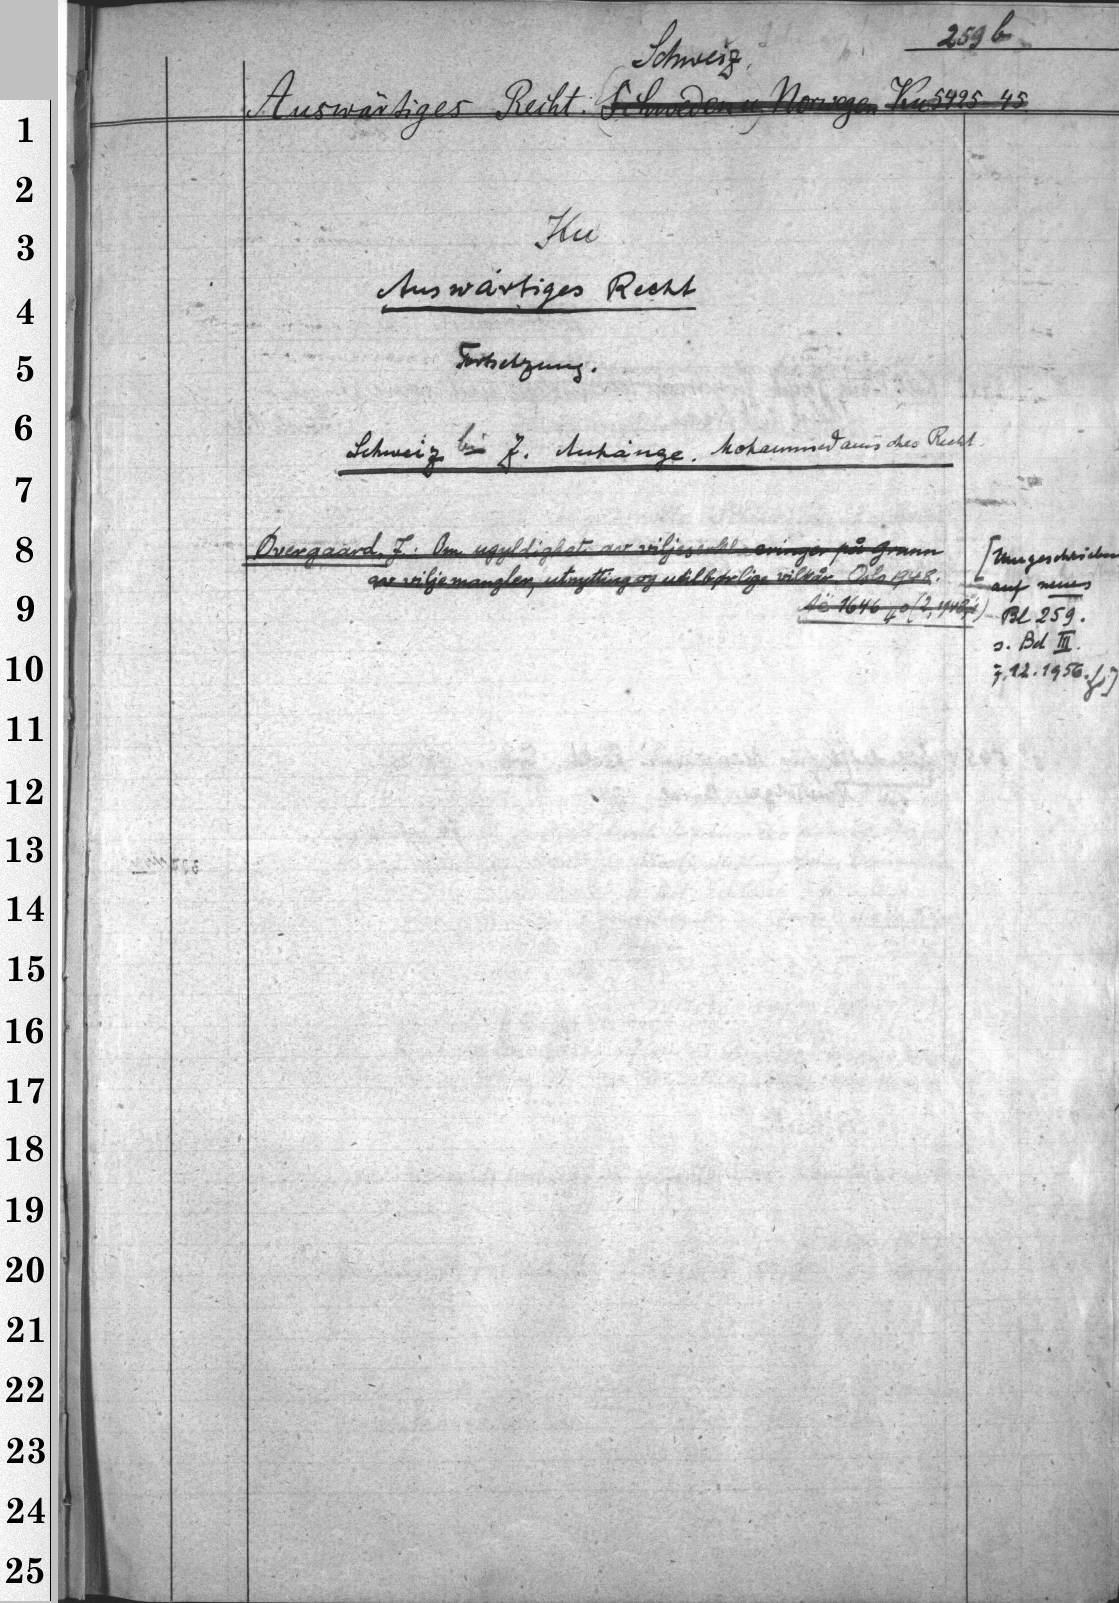 259 b
Schweiz.
Auswärtiges Recht. (Schweden u. Norwegen) Ku 5425 45
1
2
Ku
3
Auswärtiges Recht
4
Fortsetzung.
5
6
Schweiz bis Z. Anhänge. Mohammedanisches Recht.
7
8
Øvergaard, J. Om ugyldighet av viljeserklæringer på Grunn [Umgeschrieben
av viljemangler, utnytting og utilbørlige vilkår. Oslo 1948. auf neues
9
1646 40 (2, 1948, Bl. 259.
s. Bd III.
10
7.12.1956.
11
12
13
14
15
16
17
18
19
20
21
22
23
24
25